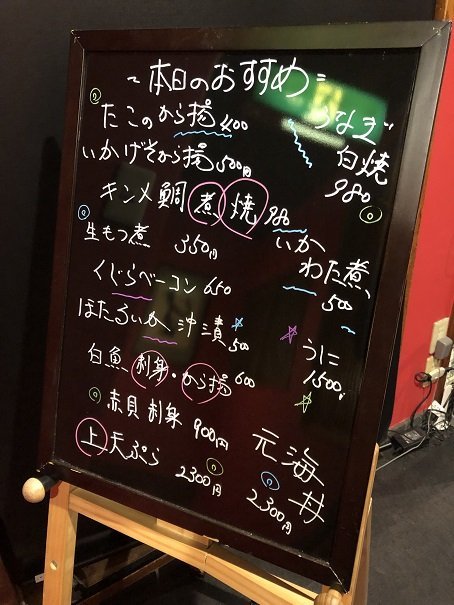 ～本日のおすすめ～
たこのから揚 400
いかげそから揚 500円
キンメ鯛 煮 焼 980
生もつ煮 350円
くじらベーコン 650
ほたるいか沖漬 500
白魚 刺身・から揚 600
赤貝刺身 900円
上天ぷら 2300円
うなぎ
白焼
980
いか
わた煮
500
うに
1500
元海丼
2300円